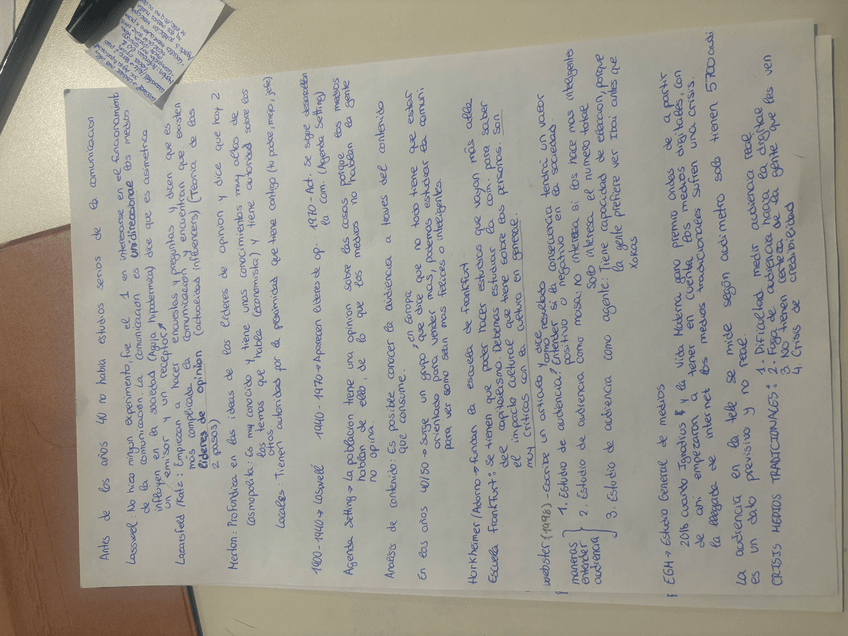 Antes de los años 40 no había estudios serios de la comunicacion
Lasswel: No hizo ningun experimento, fue el 1 en interesarse en el funcionamient
de la comunicación. La comunicación es unidireccional los medios
influyen en la sociedad (Aguja hipodermica) dice que es asimetrica
un emisor y un receptor
Lazarsfeld/Katz: Empiezan a hacer encuestas y preguntas y dicen que es
más complicada la comunicación y encuentran que existen
lideres de opinion (actualidad influencers) (Teoria de los
2 pasos)
Merton: Profundiza en las ideas de los lideres de opinion y dice que hay 2
Cosmopolita: Es muy conocido y tiene unos conocimientos muy altos de
los temas que habla (economista) y tiene autoridad sobre los
otros
Locales: Tienen autoridad por la proximidad que tiene contigo (tu padre, mejo, jefe)
1900-1940 → Lasswell 1940-1970 → Aparecen lideres de op. 1970-Act. Se sigue desarrollan
la com. (Agenda Setting)
Agenda Setting → La poblacion tiene una opinion sobre las cosas porque los medios
hablan de ello, de lo que los medios no hablan la gente
no opina.
Analisis de contenido: Es posible conocer la audiencia a traves del contenido
que consume.
En los años 40/50 → Surge un grupo, en Europa que dice que no todo tiene que estar
orientado para vender mas, podemos estudiar la comuni
para ver como sean mas felices o inteligentes.
Horkheimer/Adorno → fundan la escuela de Frankfurt
Escuela Frankfurt: Se tienen que poder hacer estudios que vayan más alla
del capitalismo. Debemos estudiar la com. para saber
el impacto cultural que tiene sobre las personas. Son
muy criticos con la cultura en general.
Webster (1998) - Escribe un articulo y dice
maneras entender audiencia
1. Estudio de audiencia como resultado: Entender si la consecuencia tendrá un valor
positivo o negativo en la sociedad.
2. Estudio de audiencia como masa: no interesa si los hace mas inteligentes
solo interesa el numero total.
3. Estudio de audiencia como agente: Tiene capacidad de eleccion, porque
la gente prefiere ver Ibai antes que
Xokas
EGM → Estudio General de medios
2016 cuando Ignatius y la Vida Moderna gano premio ondas de a partir
de ahí empezaron a tener en cuenta los medios digitales, con
la llegada de internet los medios tradicionales sufren una crisis.
La audiencia en la tele se mide según audimetro solo tienen 5700 audi
es un dato previsivo y no real.
CRISIS MEDIOS TRADICIONALES: 1. Dificultad medir audiencia real
2. Fuga de audiencia hacia lo digital
3. No tienen certeza de la gente que les ven
4. Crisis de credibilidad